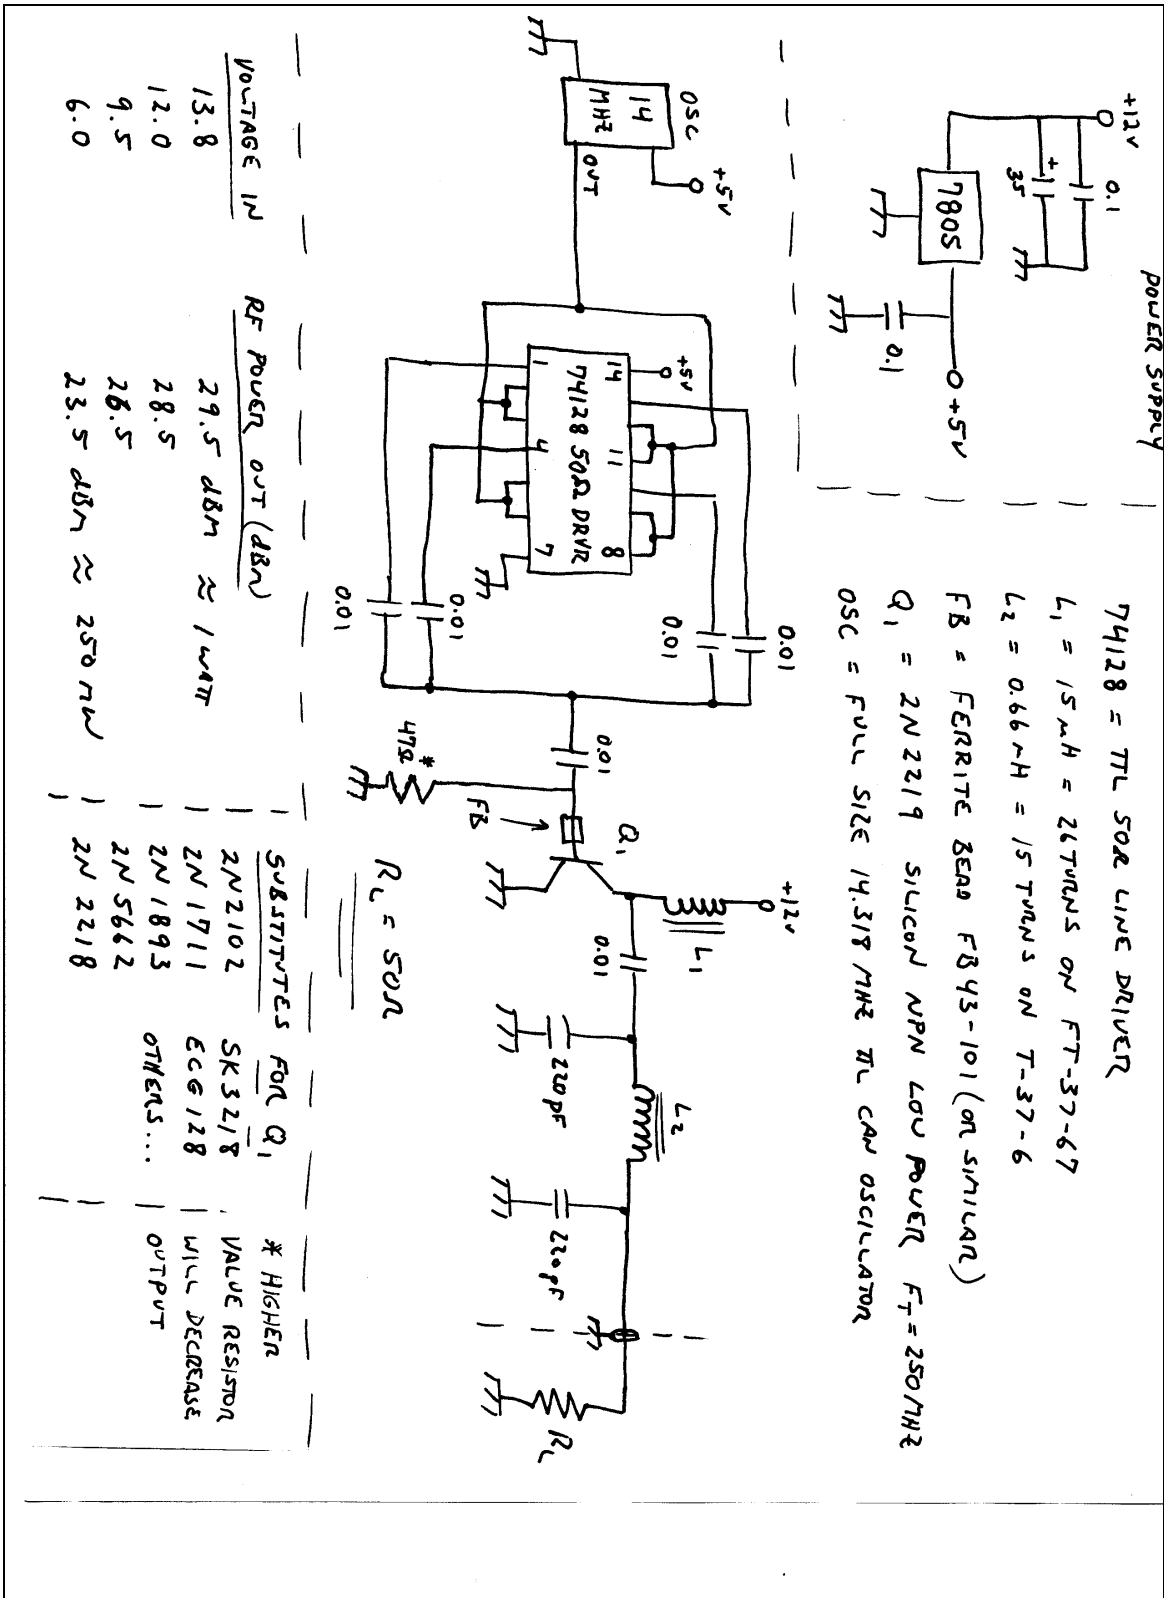 POWER SUPPLY
+12V
0.1
+
35
7805
0.1
+5V
74128 = TTL 50Ω LINE DRIVER
L1 = 15 µH = 26 TURNS ON FT-37-67
L2 = 0.66 µH = 15 TURNS ON T-37-6
FB = FERRITE BEAD FB43-101 (OR SIMILAR)
Q1 = 2N2219 SILICON NPN LOW POWER FT = 250 MHZ
OSC = FULL SIZE 14.318 MHZ TTL CAN OSCILLATOR
OSC
14
MHZ
OUT
+5V
+5V
14
11
8
74128 50Ω DRVR
1
4
7
0.01
0.01
0.01
0.01
0.01
47Ω
*
FB
Q1
+12V
L1
0.01
220pF
L2
220pF
RL
RL = 50Ω
VOLTAGE IN
13.8
12.0
9.5
6.0
RF POWER OUT (dBm)
29.5 dBm ≈ 1 WATT
28.5
26.5
23.5 dBm ≈ 250 mW
SUBSTITUTES FOR Q1
2N2102 SK3218
2N1711 ECG128
2N1893 OTHERS...
2N5662
2N2218
* HIGHER
VALUE RESISTOR
WILL DECREASE
OUTPUT